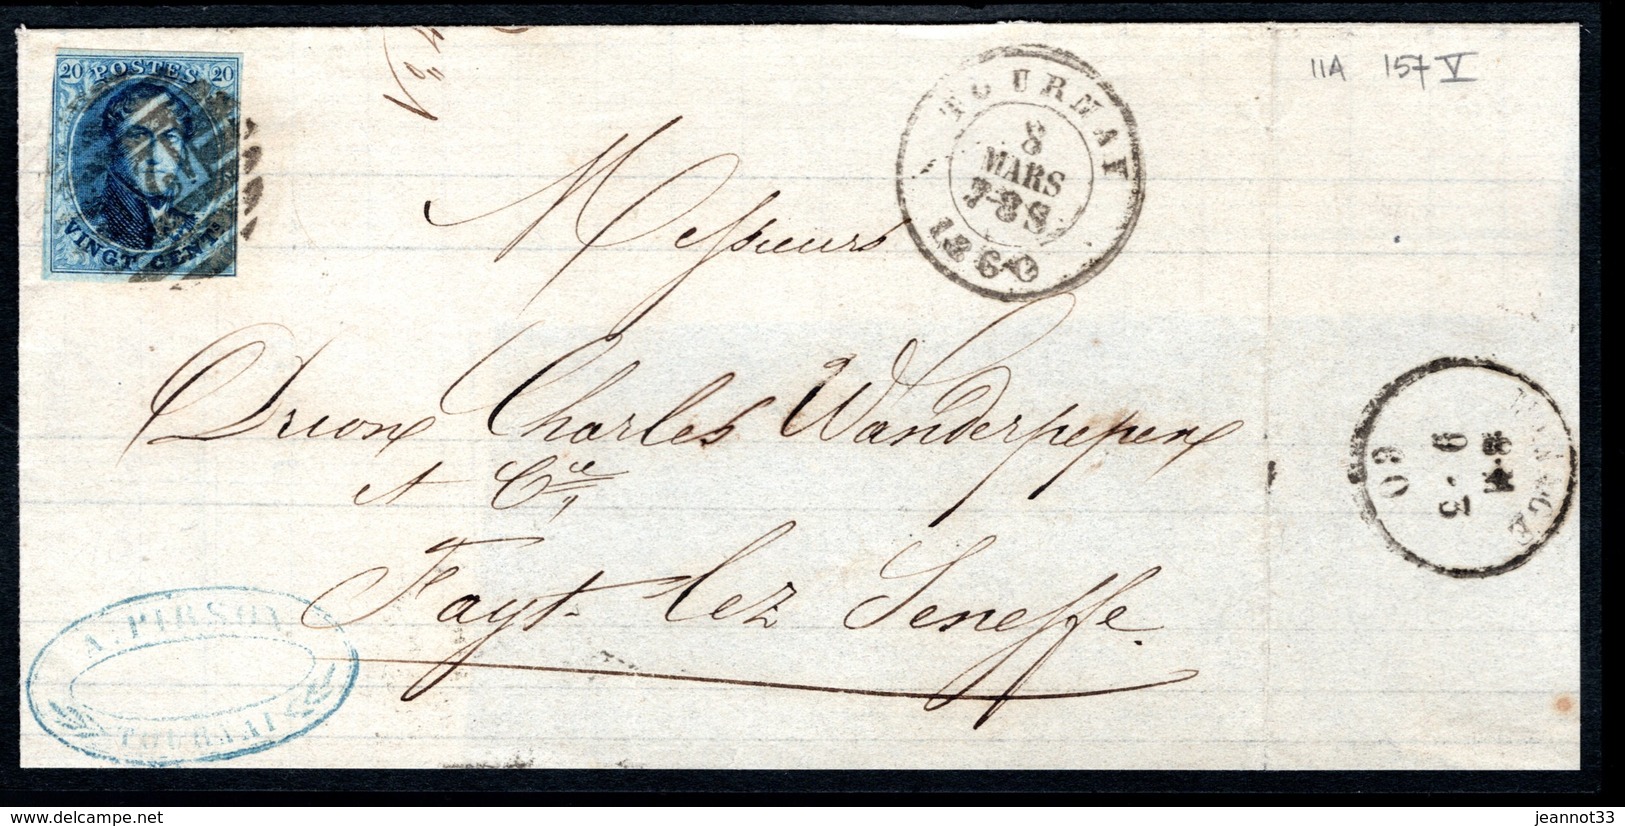 20 POSTES 20
VINGT CENTS
No 4
TOURNAY
8
MARS
7-8 S
1860
11A 157 V
Messieurs
Drion Charles Wanderpepen
et Cie,
Fayt-lez Seneffe.
9-3
60
A. PIRSON
TOURNAI
delcampe.net
jeannot33